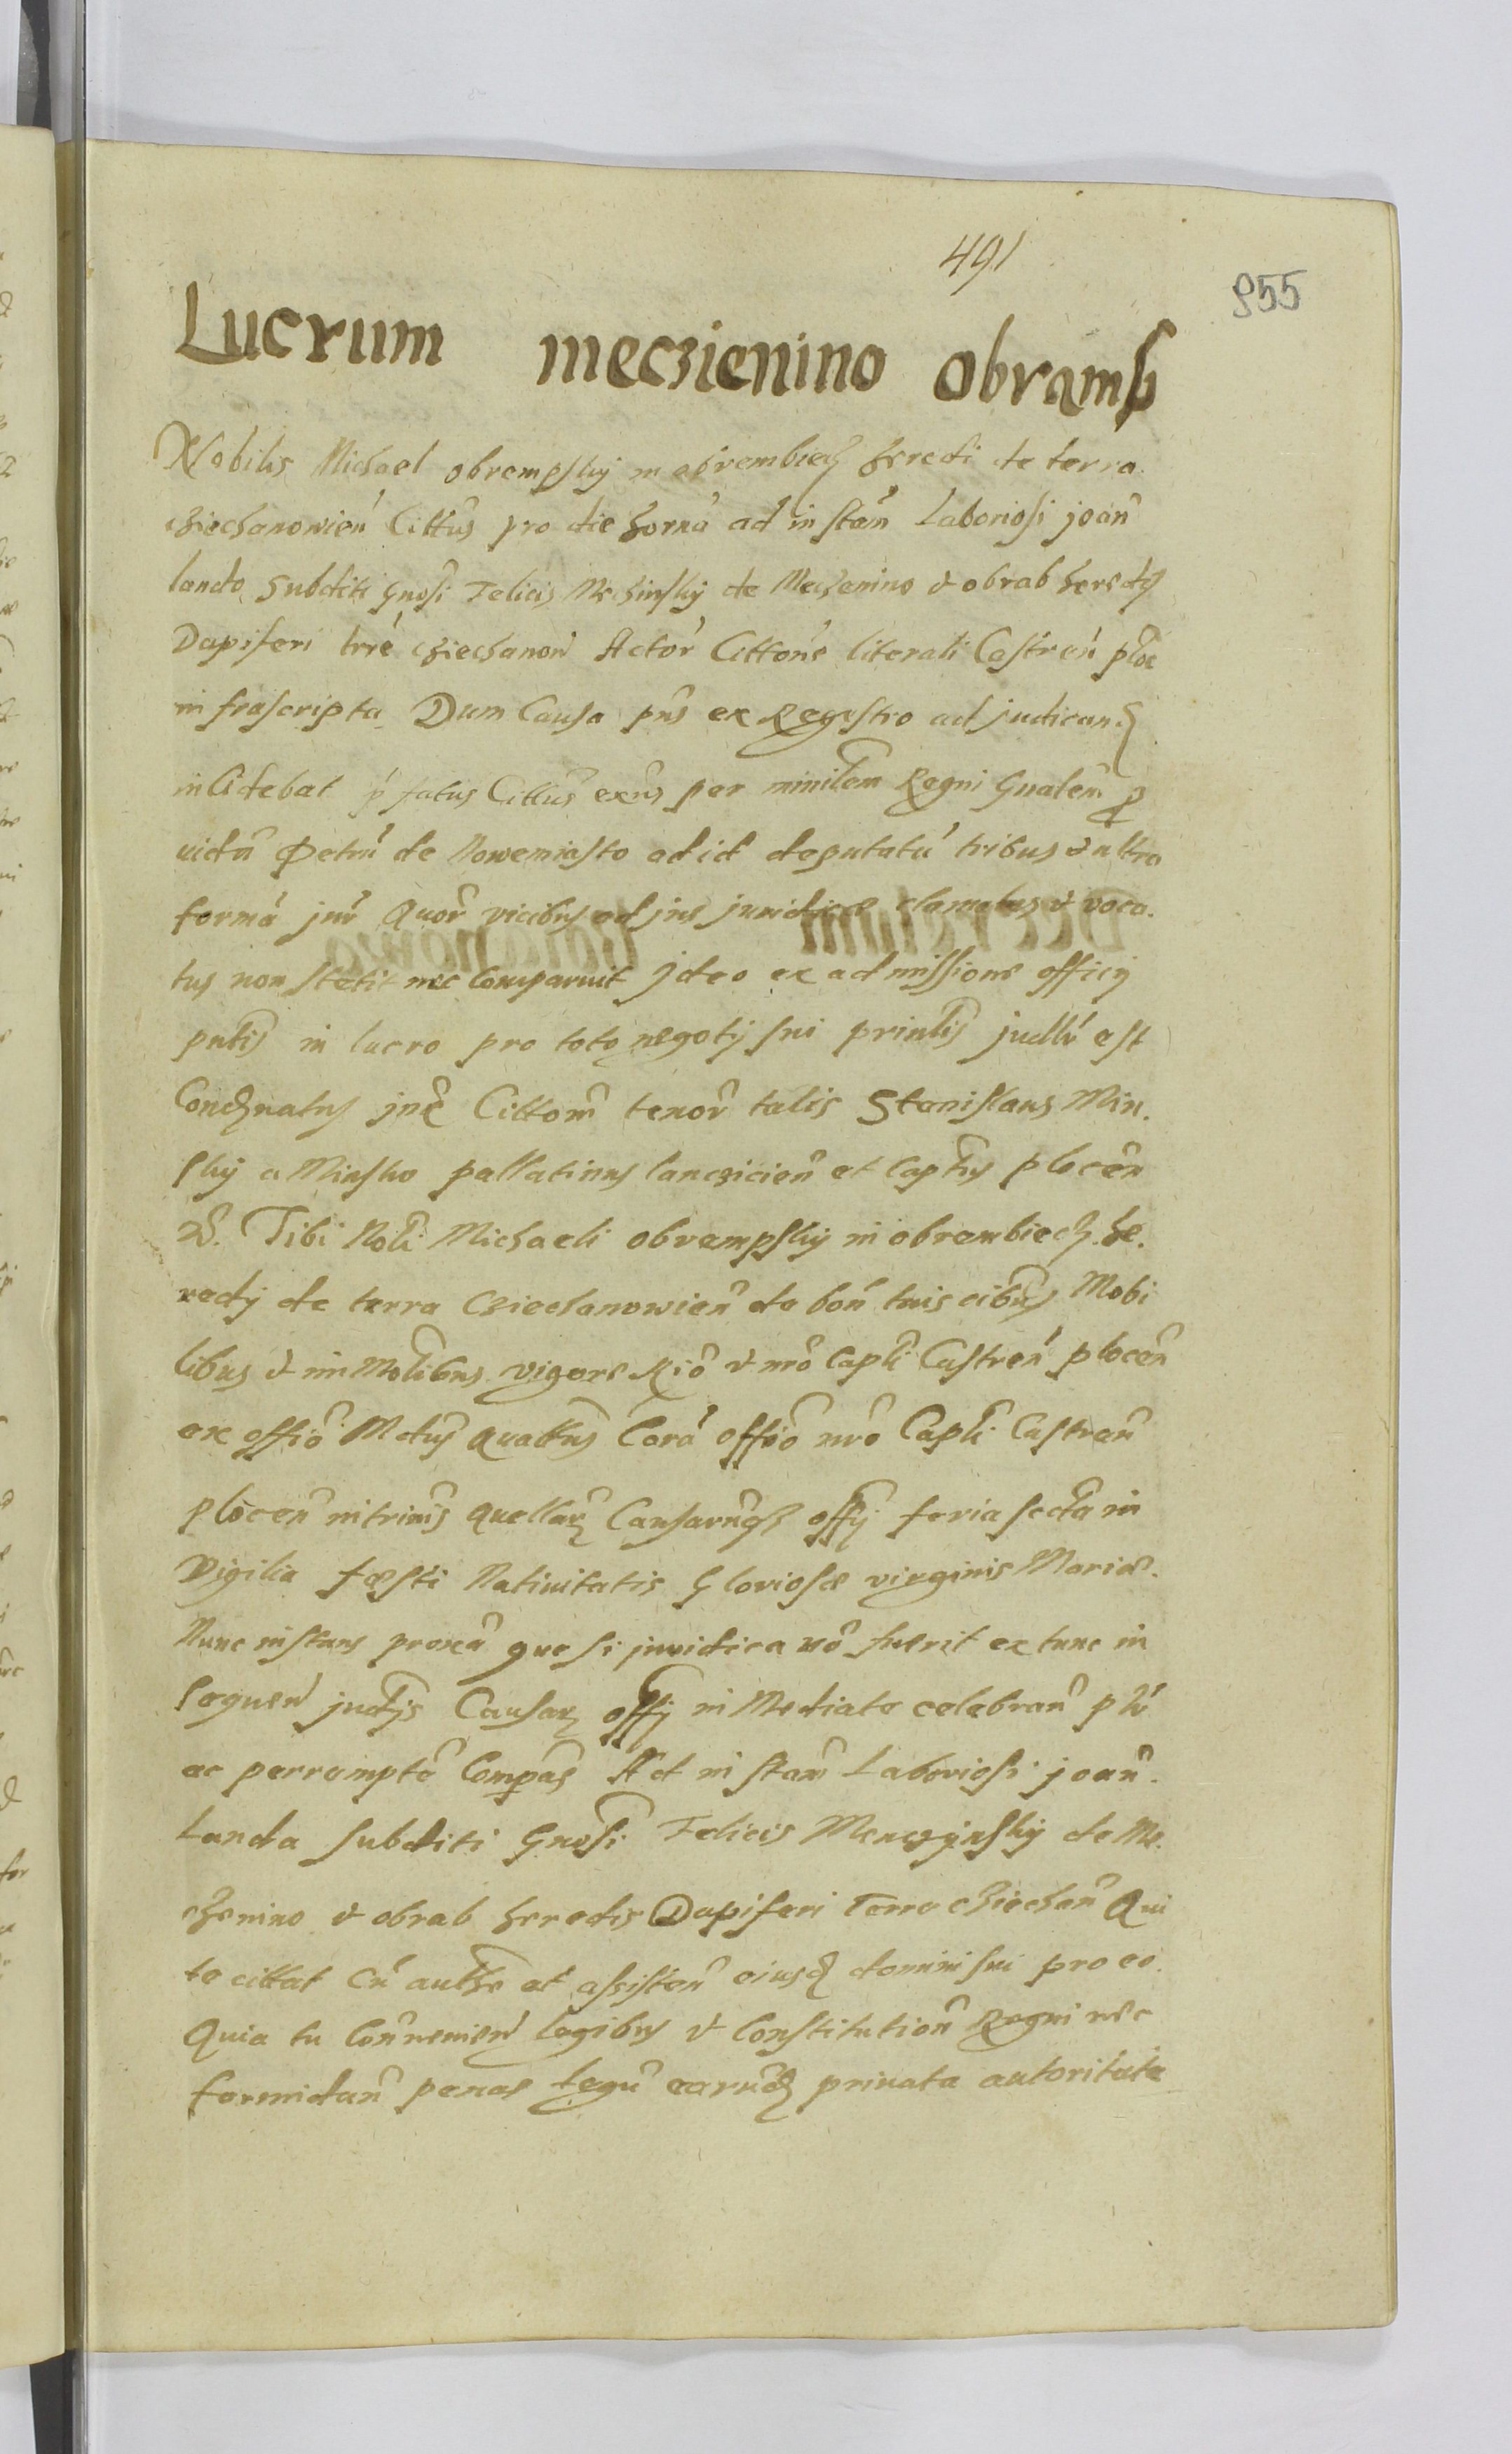 491
855
Lucrum meczienino obramp
Nobilis Michael obrempsky in obrembiech heredi de terra
cziechanowień Cittūs pro die horná ad instań Laboriosi joań
lando Subditi gnosi Felicis Mchinsky de Meczenino & obrab heredis
Dapiferi trrē cziechanoń Actoř Cittoñe literali Castreń ploc
infrascripta Dum Causa pñs ex Regestro ad judicand
incidebat p̃fatus Cittus exñs per minilem Regni Gnalem pro
uidū Petrū de Nowemiasto ad id deputatū tribus & ultra
formā juř quoř vicibus ad jus juridice clamatus & voca.
tus non stetit nec Comparuit jdeo ex admissione officij
pntis in lucro pro toto negotij sui printis judlř est
Condēnatus Cittoñis tenoř talis Stanislaus Min.
sky a Minsko pallatinus lanczicieñ et Captūs ploceñ
Tibi Noli Michaeli obrempsky in obrembiech he.
redj de terra Cziechanowień de boń tuis oibus Mobi
libus & im Molibus vigore Rio & nrō Capli Castreń ploceñ
ex offiō Mdus quattus Corā offiō nrō Capli Castreñ
ploceñ intrinis quellarz Causarūqz offij feria secta in
Vigilia fœsti Natiuitatis Gloriosæ virginis Mariæ.
Nunc instans proxā que si juridica nō fuerit ex tunc in
sequeń judijs Causarz offij in Mediate celebrań
ac perremptē Compeas Ad instań Laboriosi joań.
Landa subditi Gnosi Felicis Menczinsky de Me.
czenino & obrab heredis Dapiferi Terre cziechań Qui
te cittat Cū auth̃e et assisteñ eiusd domini sui pro eo.
Quia tu Connenien legibus & Constitutioñ Regni nec
formidań penas legū earūd priuata autoritate